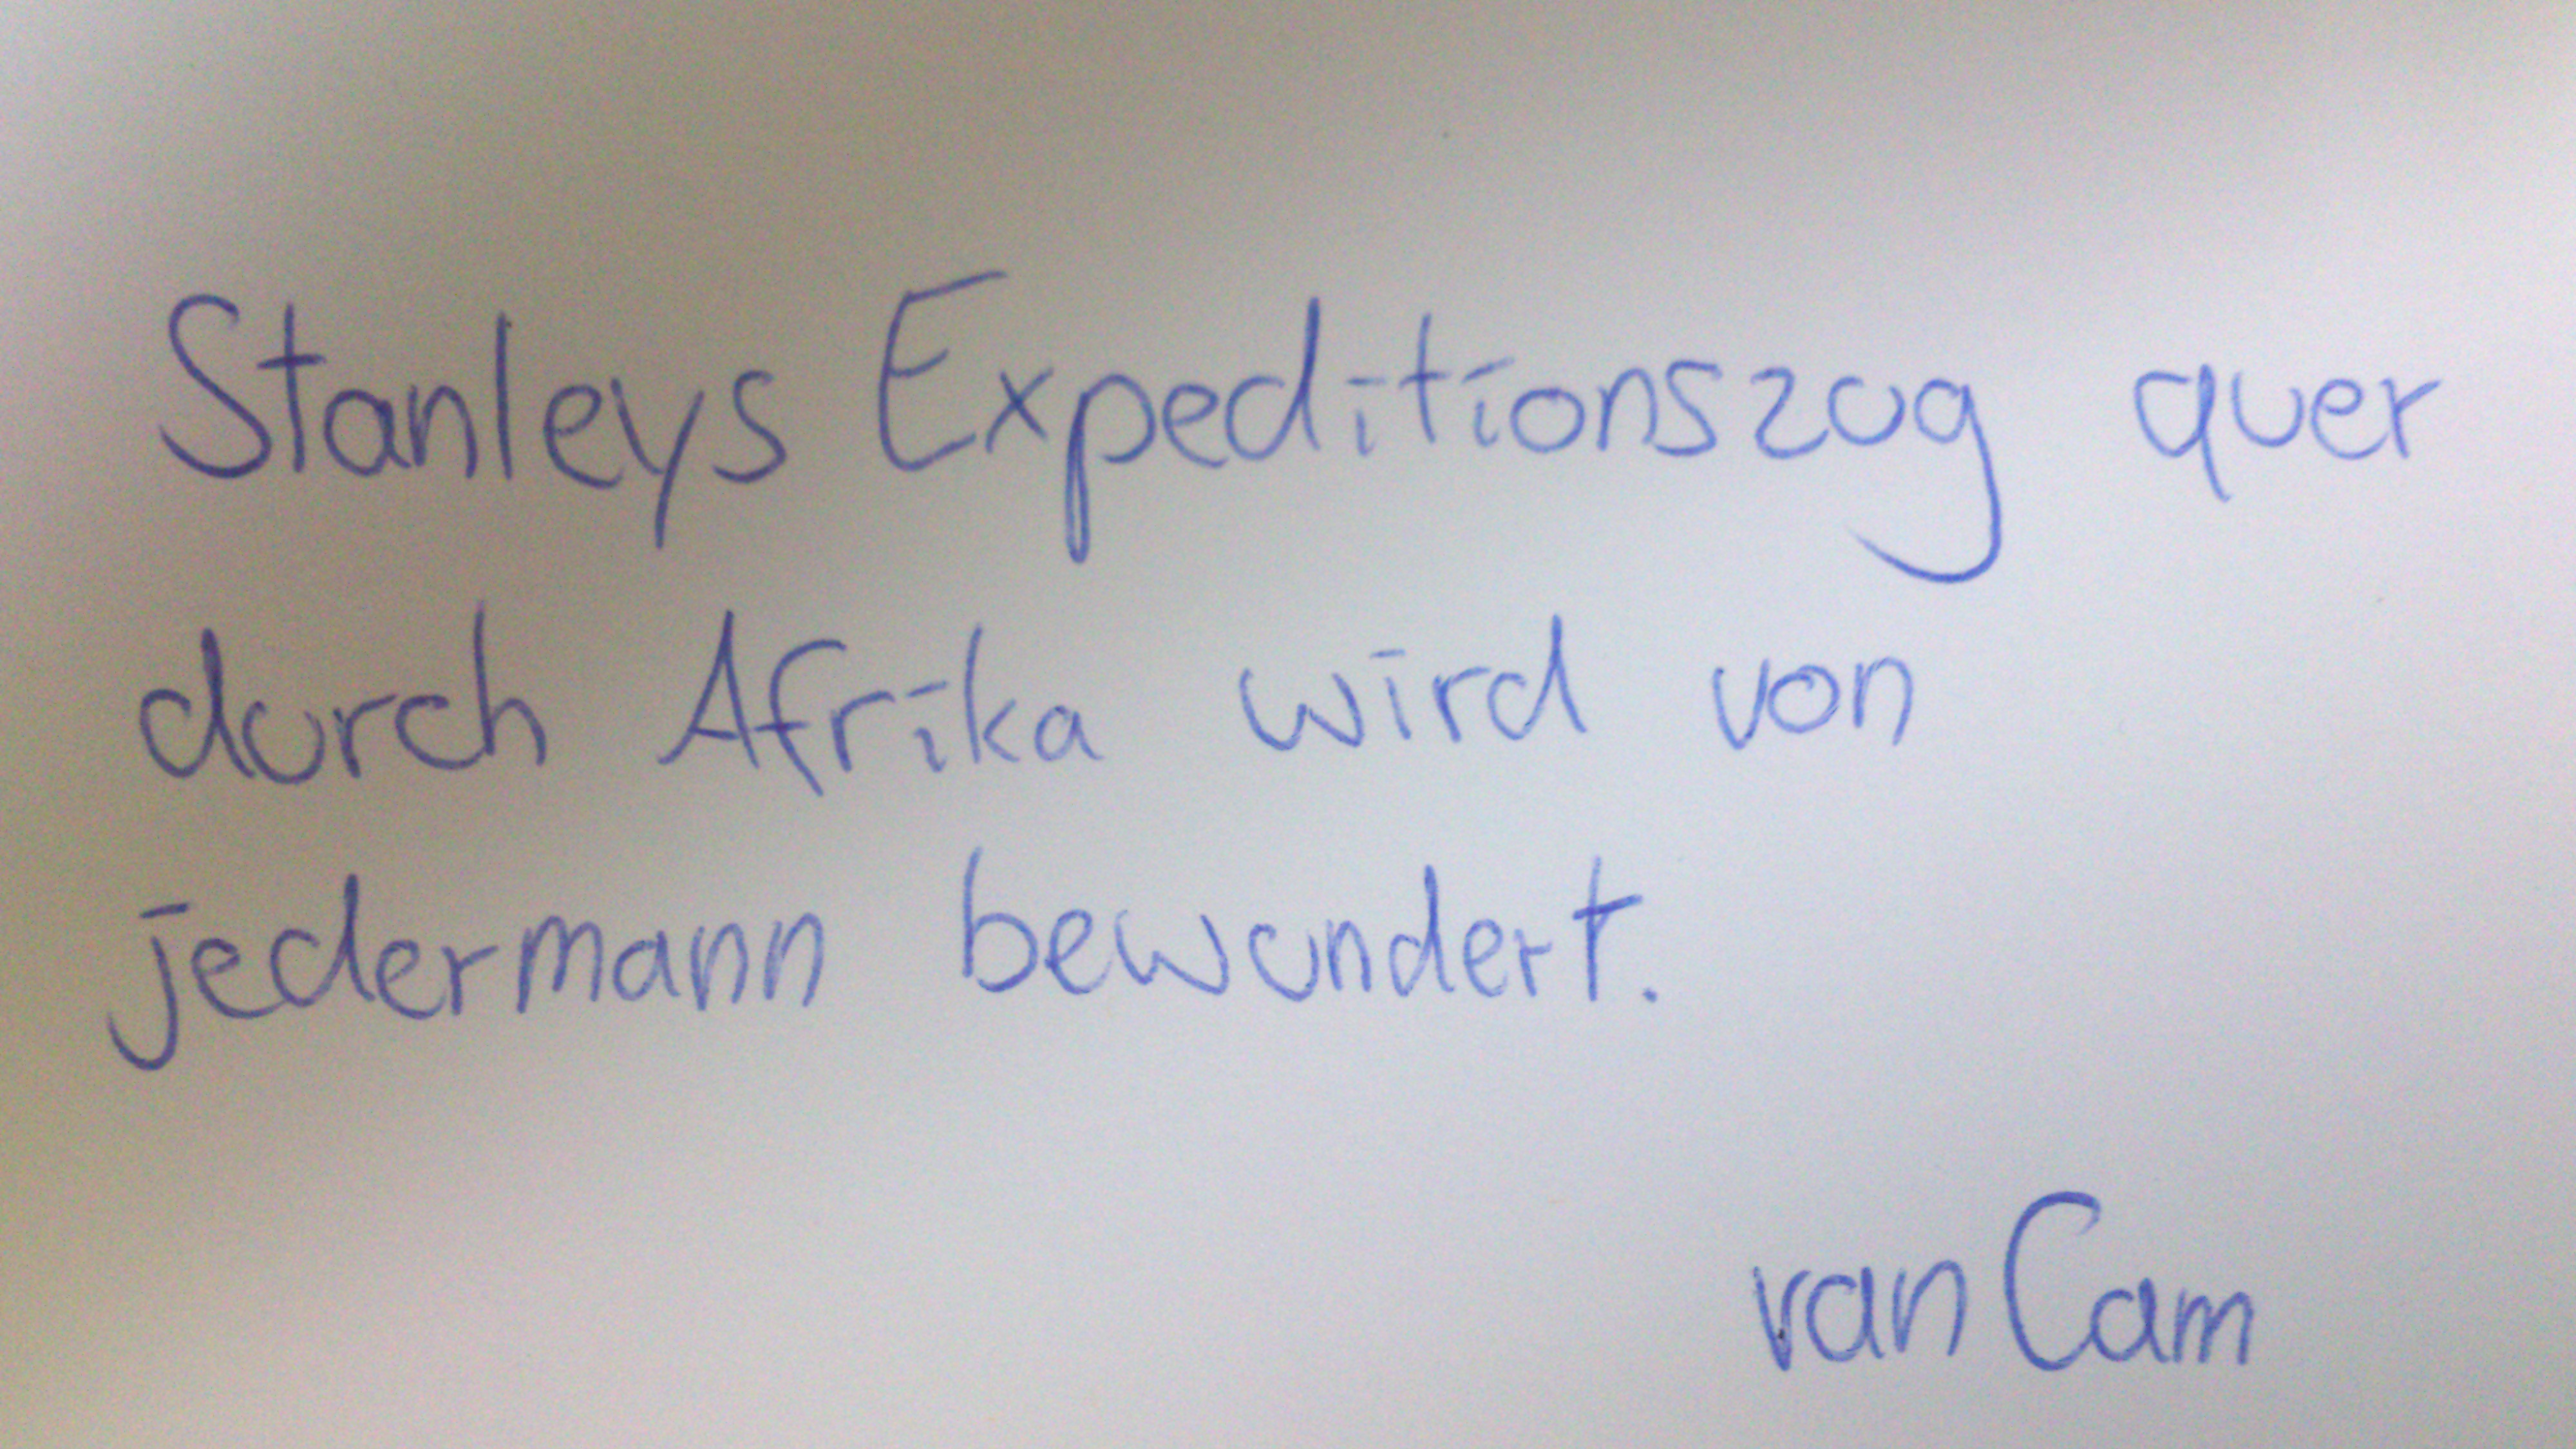 Stanleys Expeditionszug quer
durch Afrika wird von
jedermann bewundert.
van Cam